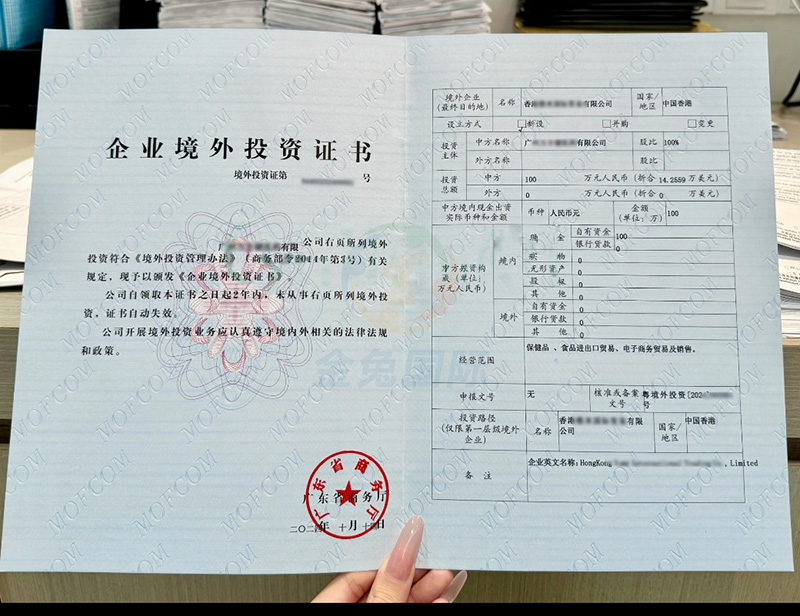 企业境外投资证书
境外投资证第 号
广 有限 公司右页所列境外
投资符合《境外投资管理办法》（商务部令2014年第3号）有关
规定，现予以颁发《企业境外投资证书》。
公司自领取本证书之日起2年内，未从事右页所列境外投
资，证书自动失效。
公司开展境外投资业务应认真遵守境内外相关的法律法规
和政策。
广东省商务厅
广东省商务厅
二〇二四年 十月 十 日
境外企业（最终目的地） 名称 香港 有限公司 国家/地区 中国香港
设立方式 新设 并购 变更
投资主体 中方名称 广 有限公司 股比 100%
外方名称 股比
投资总额 中方 100 万元人民币（折合 14.2559 万美元）
外方 0 万元人民币（折合 0 万美元）
中方境内现金出资实际币种和金额 币种 人民币元 金额（单位：万） 100
中方投资构成（单位：万元人民币） 境内 现金 自有资金 100
银行贷款 0
实物 0
无形资产 0
股权 0
其他 0
境外 自有资金 0
银行贷款 0
其他 0
经营范围 保健品、食品进出口贸易、电子商务贸易及销售。
申报文号 无 核准或备案文号 粤境外投资[202 号
投资路径（仅限第一层级境外企业） 名称 香港 有限公司 国家/地区 中国香港
备注 企业英文名称：HongKong International Trading Co., Limited
金兔国际
MOFCOM